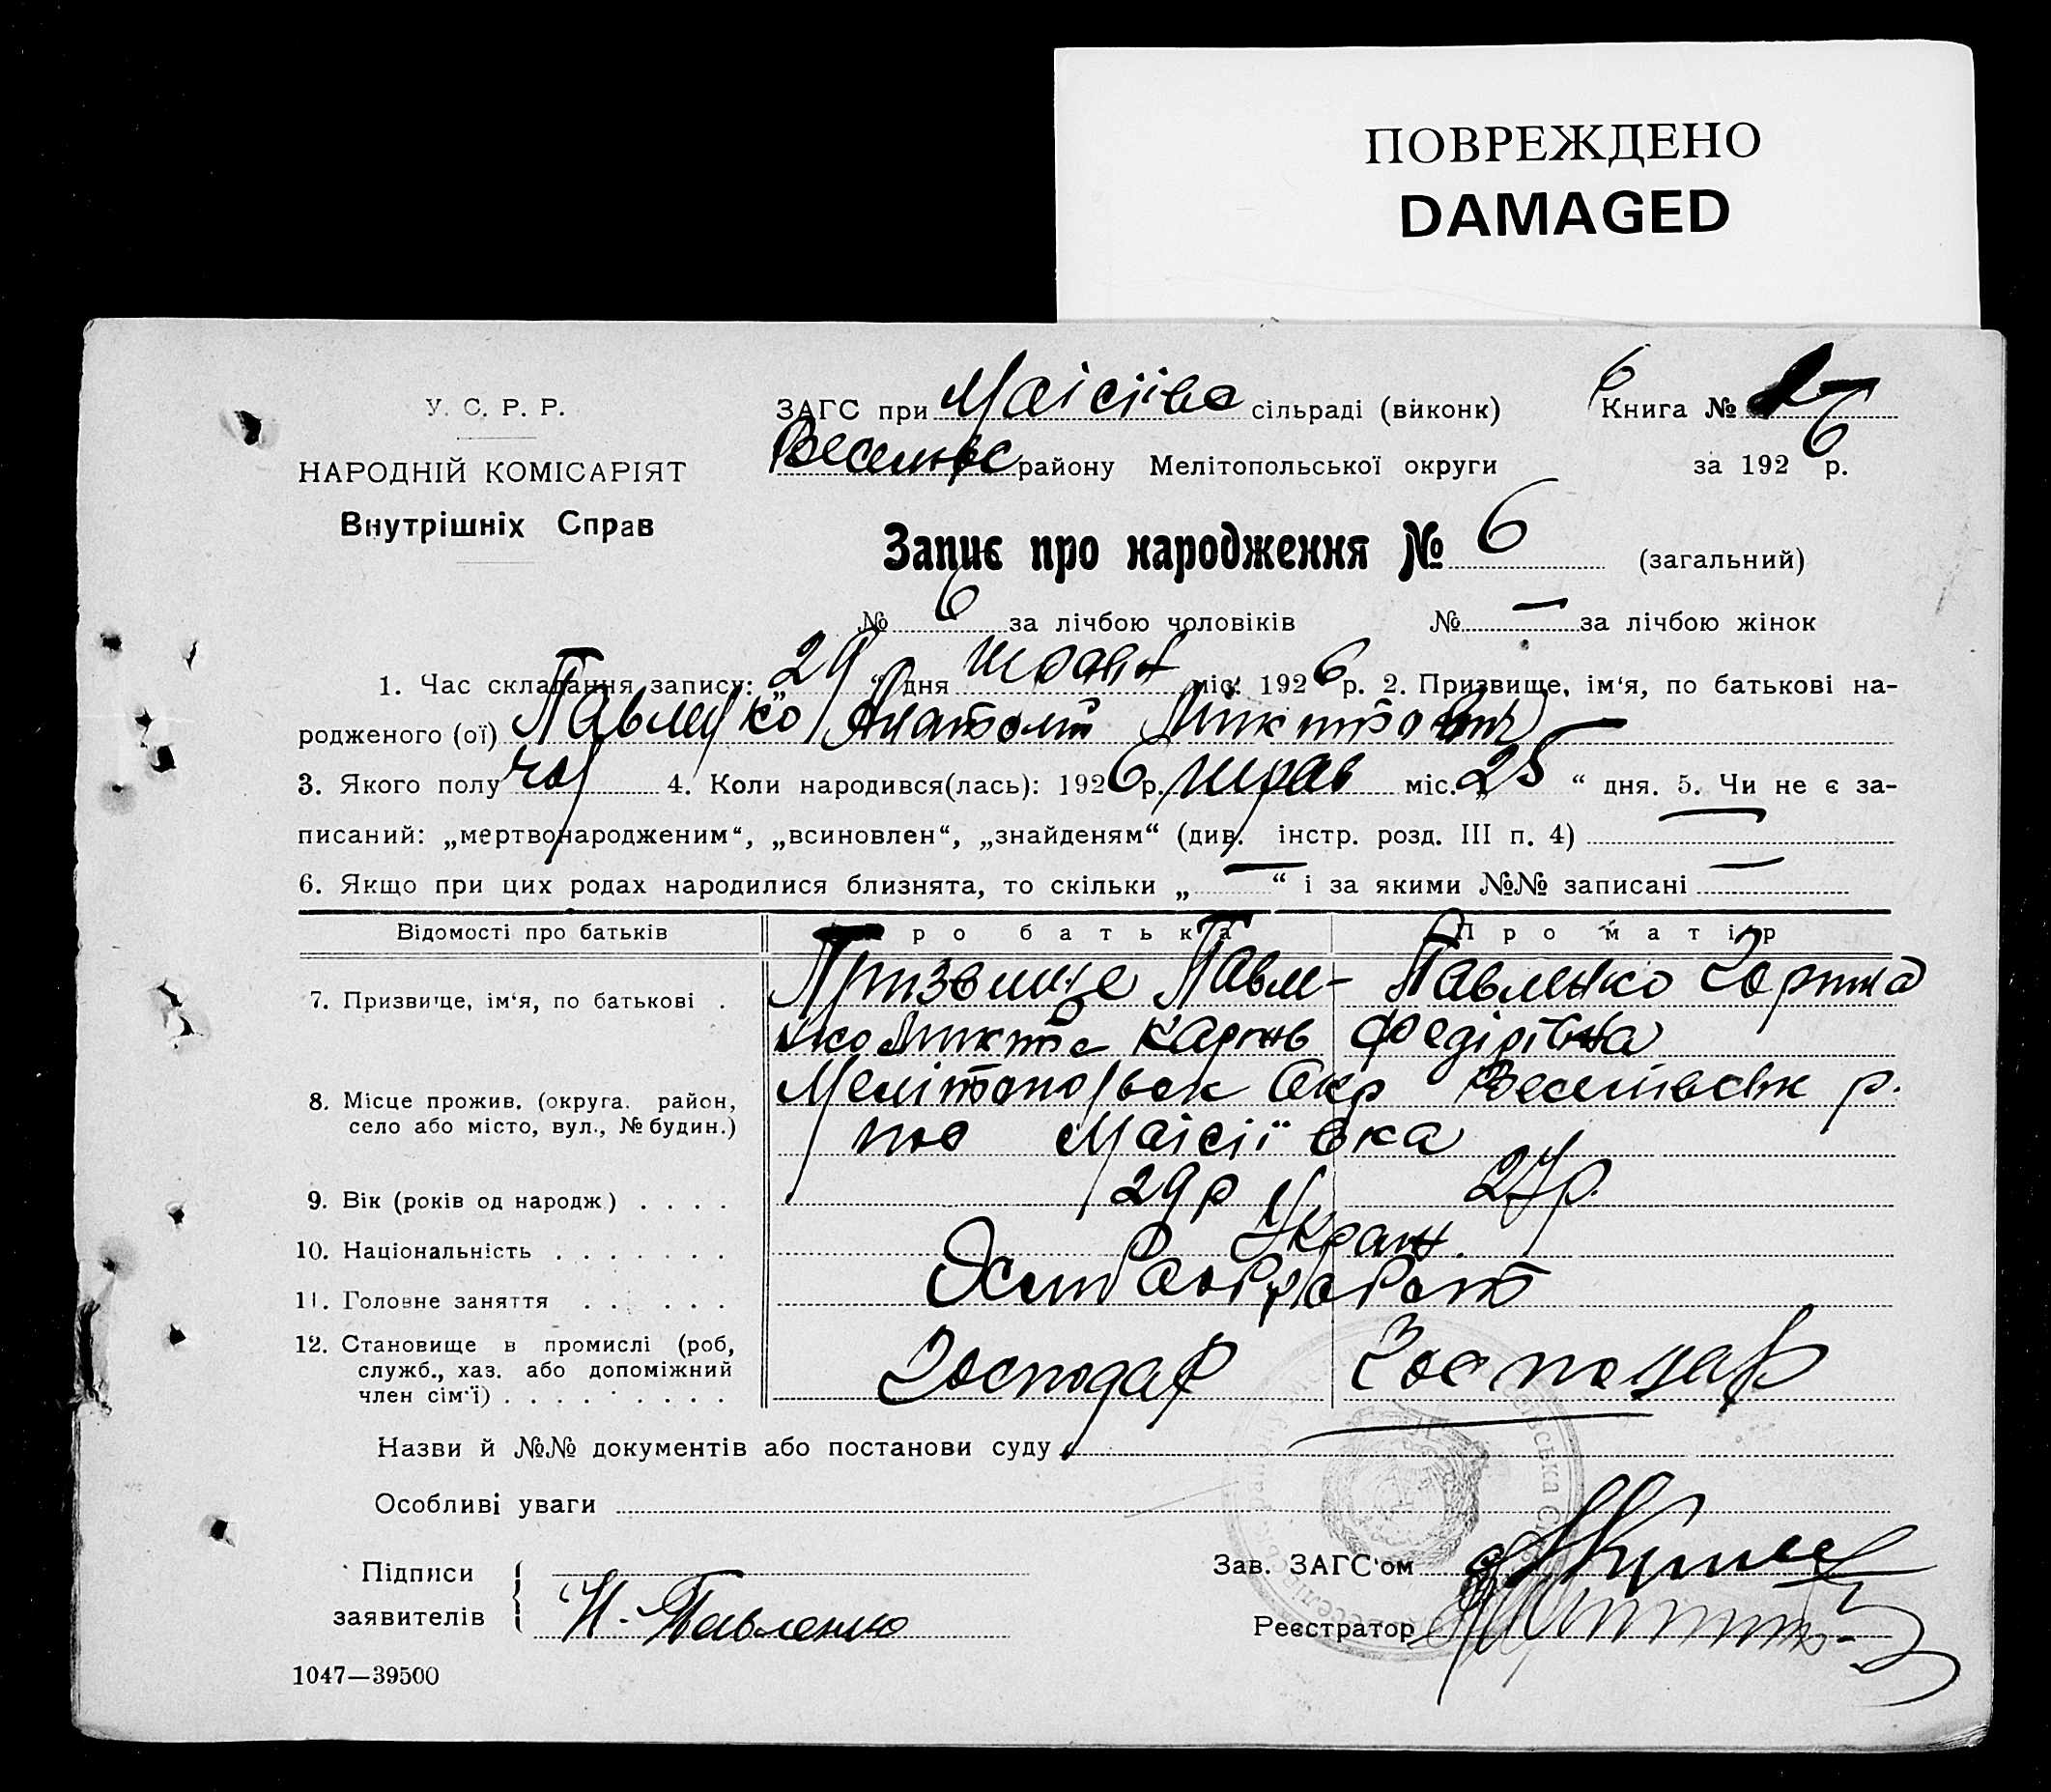 ПОВРЕЖДЕНО
DAMAGED
У. С. Р. Р.
НАРОДНІЙ КОМІСАРІЯТ
Внутрішніх Справ
ЗАГС при Маісіївс сільраді (виконк) Книга № 6
району Мелітопольської округи за 1926 р.
Запис про народження № 6 (загальний)
№ 6 за лічбою чоловіків № — за лічбою жінок
1. Час складання запису: „29“ дня міс. 1926 р. 2. Призвище, ім‘я, по батькові на-
родженого (ої) Павленко Анатолій
3. Якого полу чол 4. Коли народився(лась): 1926 р. трав міс. „25“ дня. 5. Чи не є за-
писаний: „мертвонародженим“, „всиновлен“, „знайденям“ (див. інстр. розд. III п. 4) —
6. Якщо при цих родах народилися близнята, то скільки „—“ і за якими №№ записані —
Відомості про батьків Про батька Про матір
7. Призвище, ім‘я, по батькові . Призвище Павле- Павленко
нко Федірівна
8. Місце прожив. (округа. район, Мелітопольск Окр р.
село або місто, вул., № будин.) Маісіївка
9. Вік (років од народж) . . . . 29 р 27 р.
10. Національність . . . . . . . Украін.
11. Головне заняття . . . . . .
12. Становище в промислі (роб, Господар Господар
служб., хаз. або допоміжний
член сім‘ї) . . . . . . . . .
Назви й №№ документів або постанови суду
Особливі уваги
Підписи Зав. ЗАГС‘ом
заявителів Н. Павленко Реєстратор
1047—39500